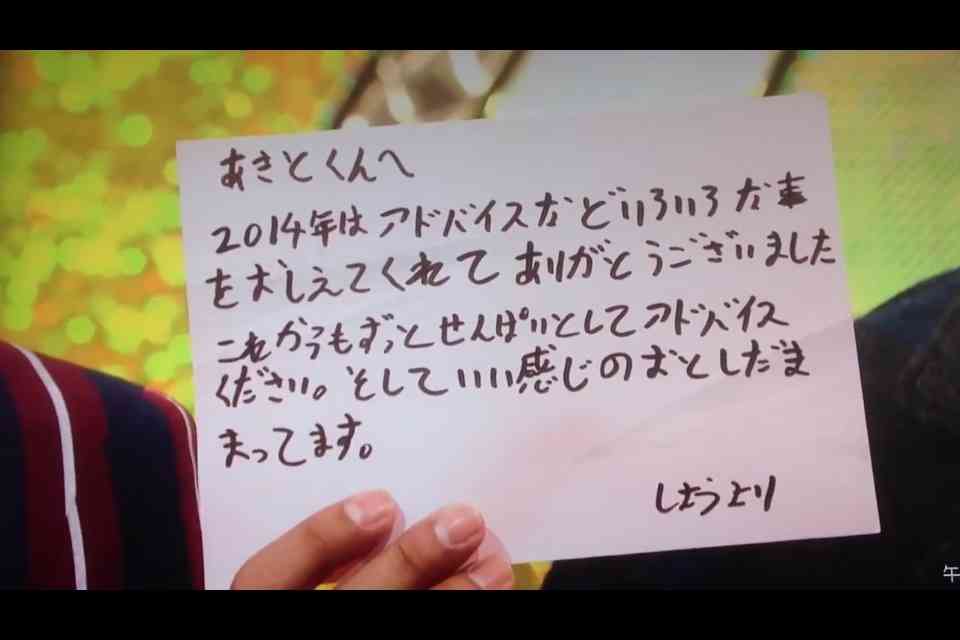 あきとくんへ
2014年はアドバイスなどいろいろな事
をおしえてくれてありがとうございました
これからもずっとせんぱいとしてアドバイス
ください。そしていい感じのおとしだま
まってます。
しょうより
午